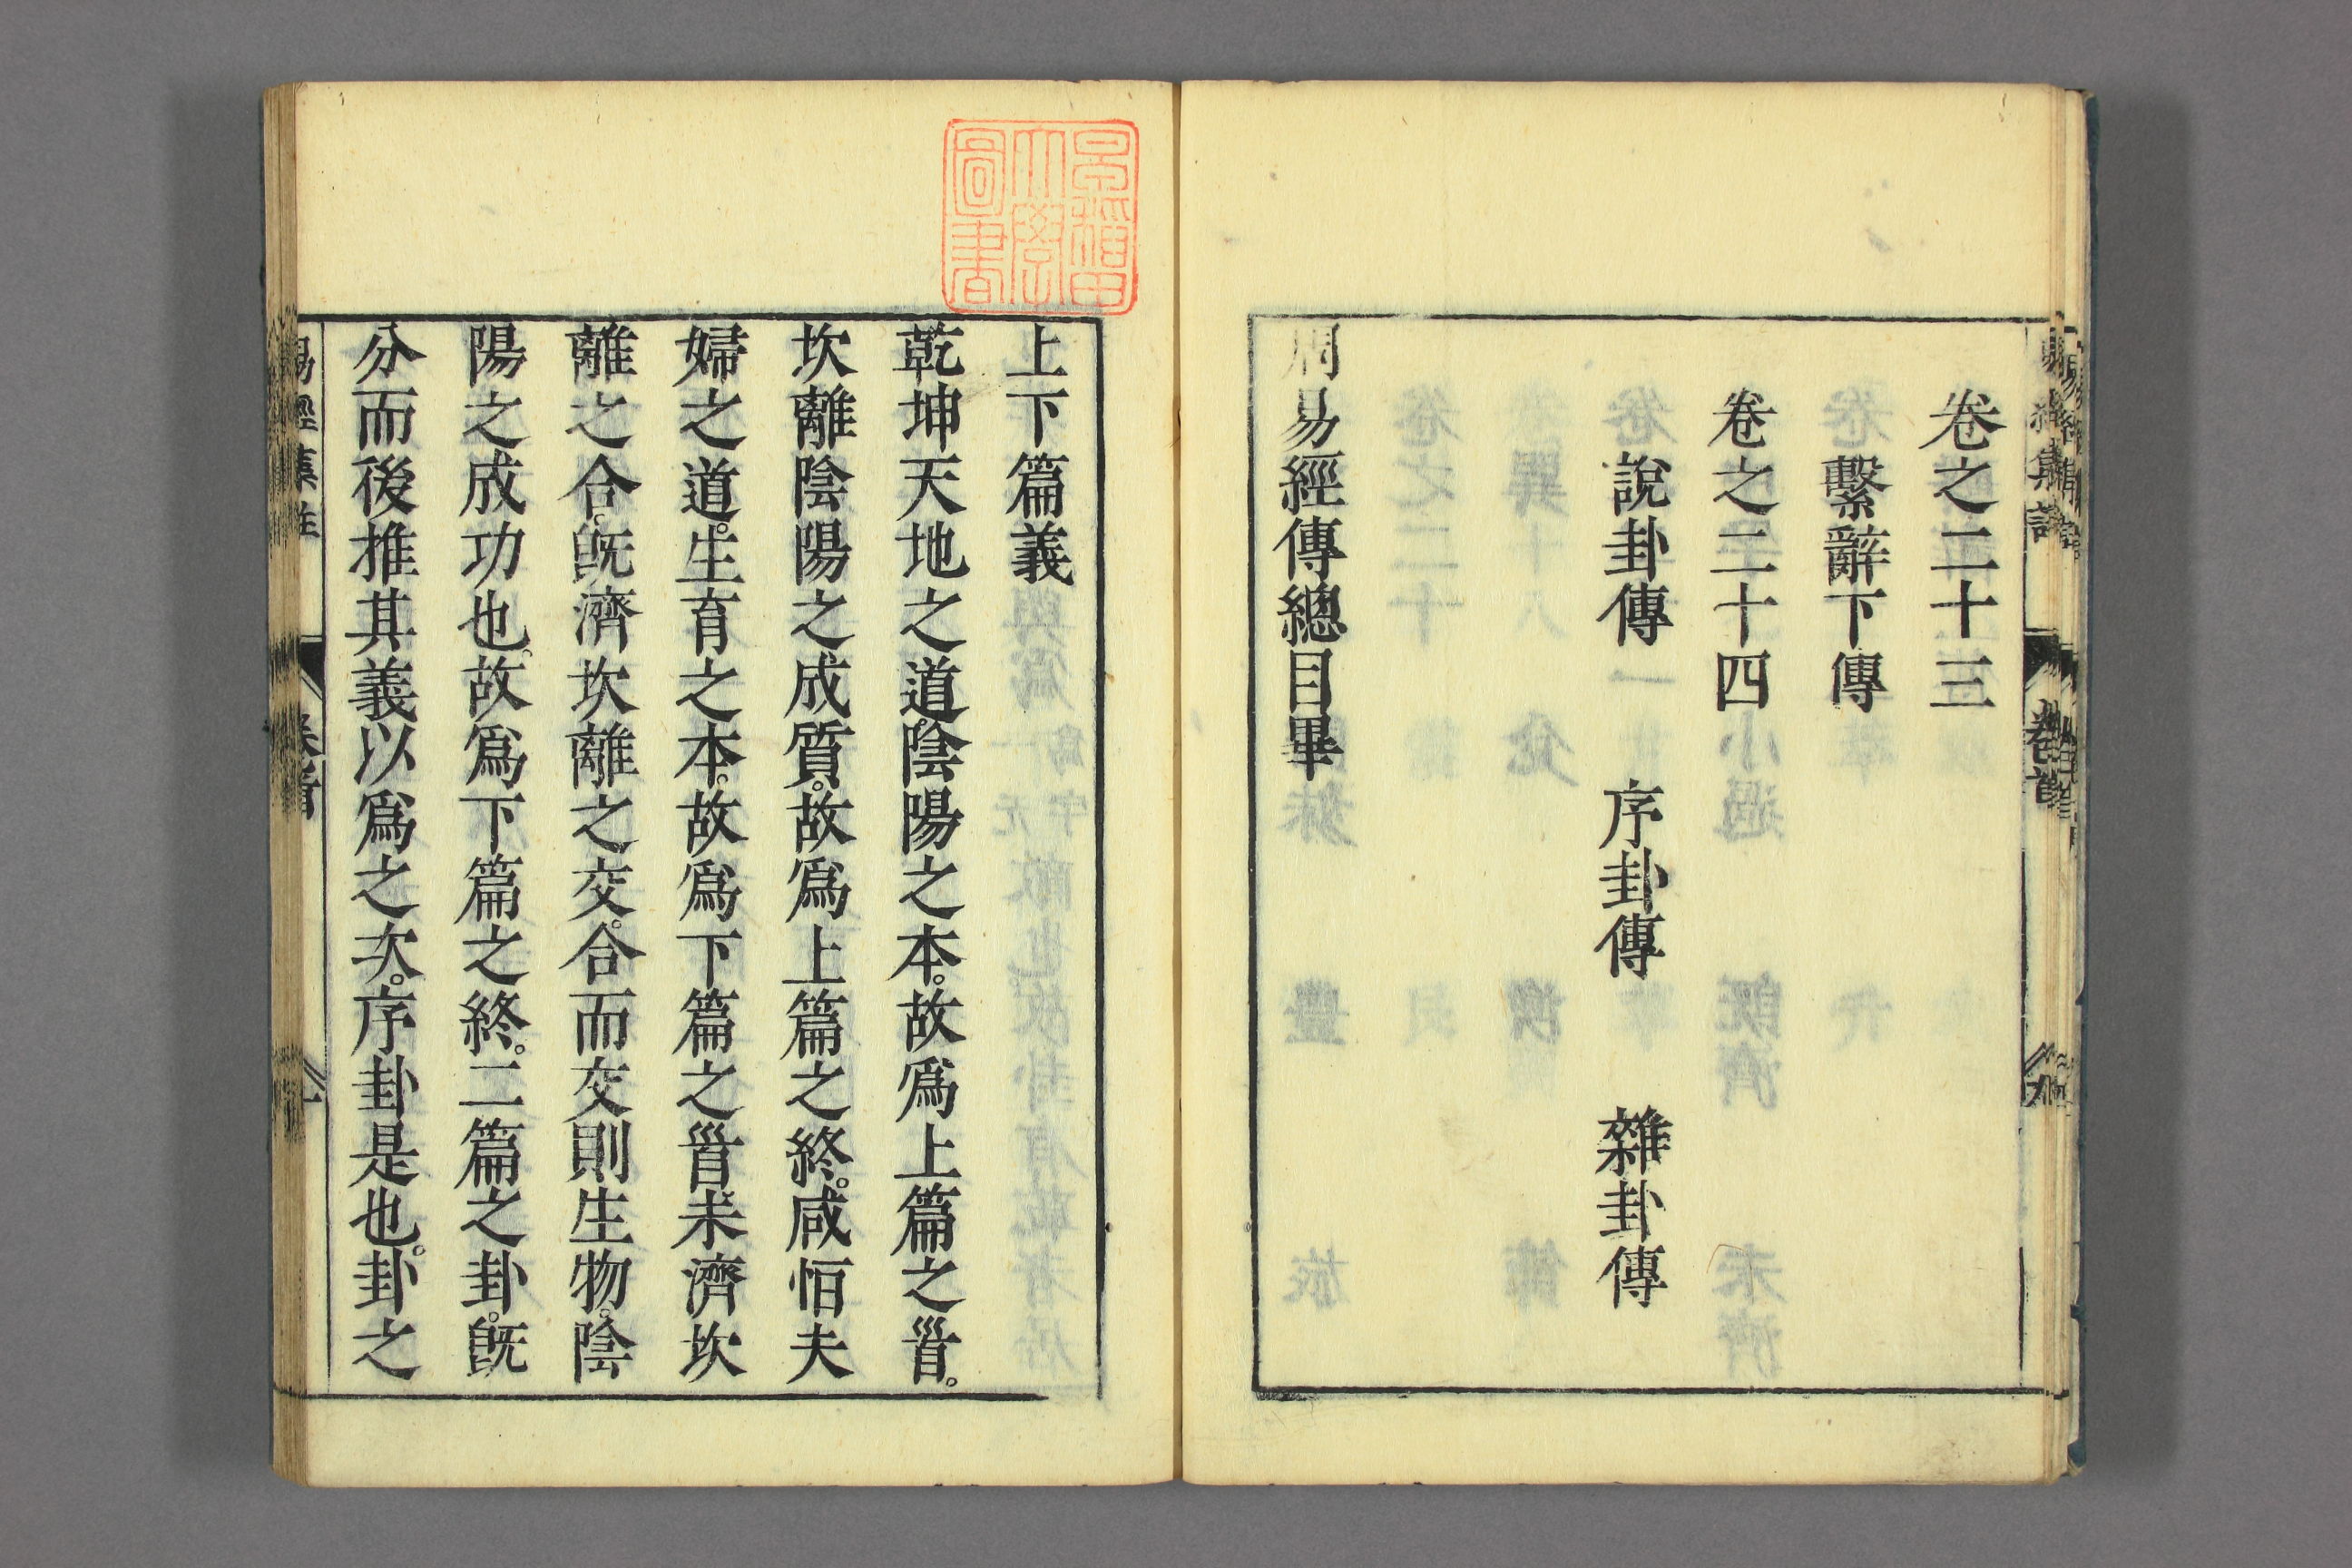 卷之二十三
繫辭下傳
卷之二十四
說卦傳 序卦傳 雜卦傳
周易經傳總目畢
早稲田大學圖書
上下篇義
乾坤天地之道。陰陽之本。故爲上篇之首。
坎離陰陽之成質。故爲上篇之終。咸恒夫
婦之道。生育之本。故爲下篇之首。未濟坎
離之合。旣濟坎離之交。合而交則生物。陰
陽之成功也。故爲下篇之終。二篇之卦。旣
分而後推其義以爲之次。序卦是也。卦之